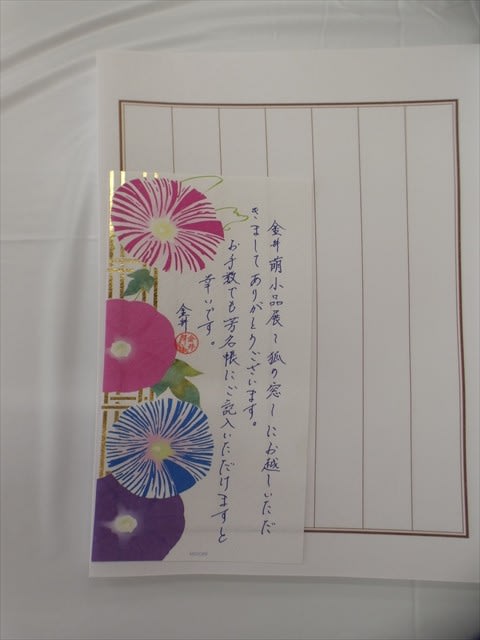 金井萌小品展〜狐の窓〜にお越しいただ
きましてありがとうございます。
お手数でも芳名帳にご記入いただけますと
幸いです。
金井
金井
MIDORI